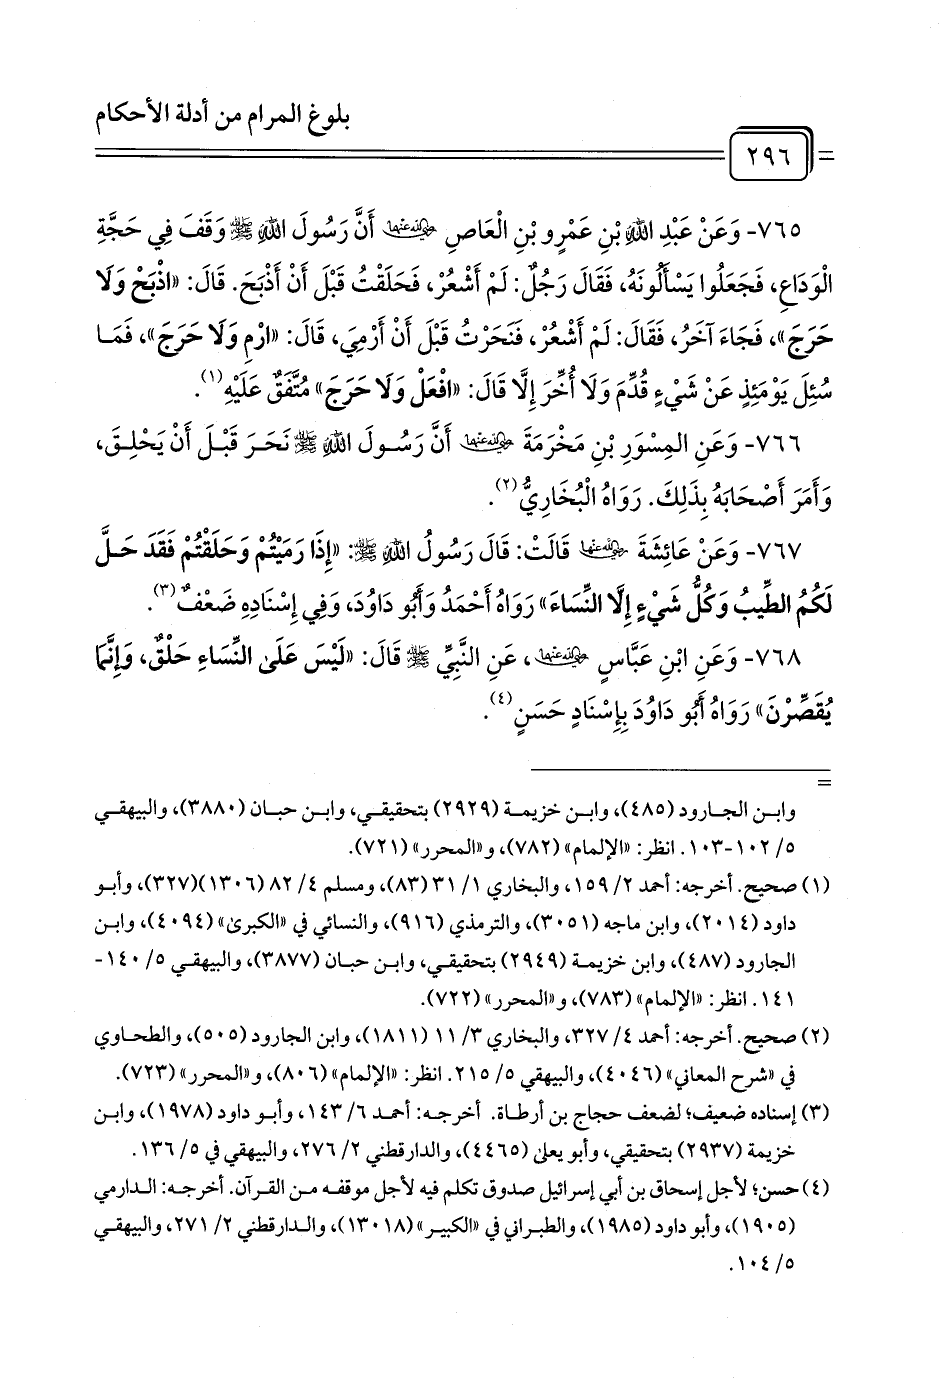 بلوغ المرام من أدلة الأحكام
٢٩٦
٧٦٥- وَعَنْ عَبْدِ اللهِ بْنِ عَمْرِو بْنِ الْعَاصِ رضي الله عنهما أَنَّ رَسُولَ اللهِ ﷺ وَقَفَ فِي حَجَّةِ
الْوَدَاعِ، فَجَعَلُوا يَسْأَلُونَهُ، فَقَالَ رَجُلٌ: لَمْ أَشْعُرْ، فَحَلَقْتُ قَبْلَ أَنْ أَذْبَحَ. قَالَ: «اذْبَحْ وَلَا
حَرَجَ»، فَجَاءَ آخَرُ، فَقَالَ: لَمْ أَشْعُرْ، فَنَحَرْتُ قَبْلَ أَنْ أَرْمِيَ، قَالَ: «ارْمِ وَلَا حَرَجَ»، فَمَا
سُئِلَ يَوْمَئِذٍ عَنْ شَيْءٍ قُدِّمَ وَلَا أُخِّرَ إِلَّا قَالَ: «افْعَلْ وَلَا حَرَجَ» مُتَّفَقٌ عَلَيْهِ(١).
٧٦٦- وَعَنِ المِسْوَرِ بْنِ مَخْرَمَةَ رضي الله عنهما أَنَّ رَسُولَ اللهِ ﷺ نَحَرَ قَبْلَ أَنْ يَحْلِقَ،
وَأَمَرَ أَصْحَابَهُ بِذَلِكَ. رَوَاهُ الْبُخَارِيُّ(٢).
٧٦٧- وَعَنْ عَائِشَةَ رضي الله عنها قَالَتْ: قَالَ رَسُولُ اللهِ ﷺ: «إِذَا رَمَيْتُمْ وَحَلَقْتُمْ فَقَدَ حَلَّ
لَكُمُ الطِّيبُ وَكُلُّ شَيْءٍ إِلَّا النِّسَاءَ» رَوَاهُ أَحْمَدُ وَأَبُو دَاوُدَ، وَفِي إِسْنَادِهِ ضَعْفٌ(٣).
٧٦٨- وَعَنِ ابْنِ عَبَّاسٍ رضي الله عنهما، عَنِ النَّبِيِّ ﷺ قَالَ: «لَيْسَ عَلَى النِّسَاءِ حَلْقٌ، وَإِنَّمَا
يُقَصِّرْنَ» رَوَاهُ أَبُو دَاوُدَ بِإِسْنَادٍ حَسَنٍ(٤).
=
وابن الجارود (٤٨٥)، وابن خزيمة (٢٩٢٩) بتحقيقي، وابن حبان (٣٨٨٠)، والبيهقي
٥/ ١٠٢-١٠٣. انظر: «الإلمام» (٧٨٢)، و«المحرر» (٧٢١).
(١) صحيح. أخرجه: أحمد ٢/ ١٥٩، والبخاري ١/ ٣١ (٨٣)، ومسلم ٤/ ٨٢ (١٣٠٦)(٣٢٧)، وأبو
داود (٢٠١٤)، وابن ماجه (٣٠٥١)، والترمذي (٩١٦)، والنسائي في «الكبرى» (٤٠٩٤)، وابن
الجارود (٤٨٧)، وابن خزيمة (٢٩٤٩) بتحقيقي، وابن حبان (٣٨٧٧)، والبيهقي ٥/ ١٤٠-
١٤١. انظر: «الإلمام» (٧٨٣)، و«المحرر» (٧٢٢).
(٢) صحيح. أخرجه: أحمد ٤/ ٣٢٧، والبخاري ٣/ ١١ (١٨١١)، وابن الجارود (٥٠٥)، والطحاوي
في «شرح المعاني» (٤٠٤٦)، والبيهقي ٥/ ٢١٥. انظر: «الإلمام» (٨٠٦)، و«المحرر» (٧٢٣).
(٣) إسناده ضعيف؛ لضعف حجاج بن أرطاة. أخرجه: أحمد ٦/ ١٤٣، وأبو داود (١٩٧٨)، وابن
خزيمة (٢٩٣٧) بتحقيقي، وأبو يعلى (٤٤٦٥)، والدارقطني ٢/ ٢٧٦، والبيهقي في ٥/ ١٣٦.
(٤) حسن؛ لأجل إسحاق بن أبي إسرائيل صدوق تكلم فيه لأجل موقفه من القرآن. أخرجه: الدارمي
(١٩٠٥)، وأبو داود (١٩٨٥)، والطبراني في «الكبير» (١٣٠١٨)، والدارقطني ٢/ ٢٧١، والبيهقي
٥/ ١٠٤.